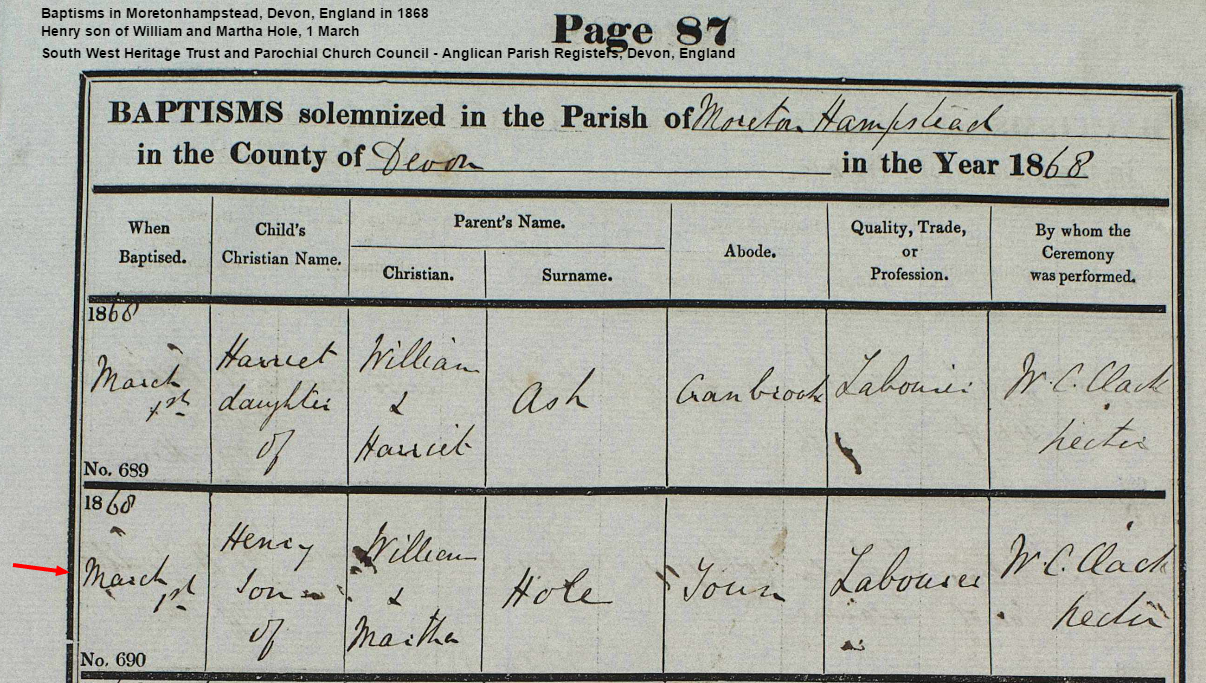 Baptisms in Moretonhampstead, Devon, England in 1868
Henry son of William and Martha Hole, 1 March
South West Heritage Trust and Parochial Church Council - Anglican Parish Registers, Devon, England
Page 87
BAPTISMS solemnized in the Parish of Moreton Hampstead
in the County of Devon in the Year 1868
When Baptised.
Child's Christian Name.
Parent's Name.
Christian.
Surname.
Abode.
Quality, Trade, or Profession.
By whom the Ceremony was performed.
1868
March 1st
No. 689
Harriet
daughter
of
William
&
Harriet
Ash
Cranbrook
Labourer
W. C. Clack
Rector
1868
March 1st
No. 690
Henry
Son
of
William
&
Martha
Hole
Town
Labourer
W. C. Clack
Rector